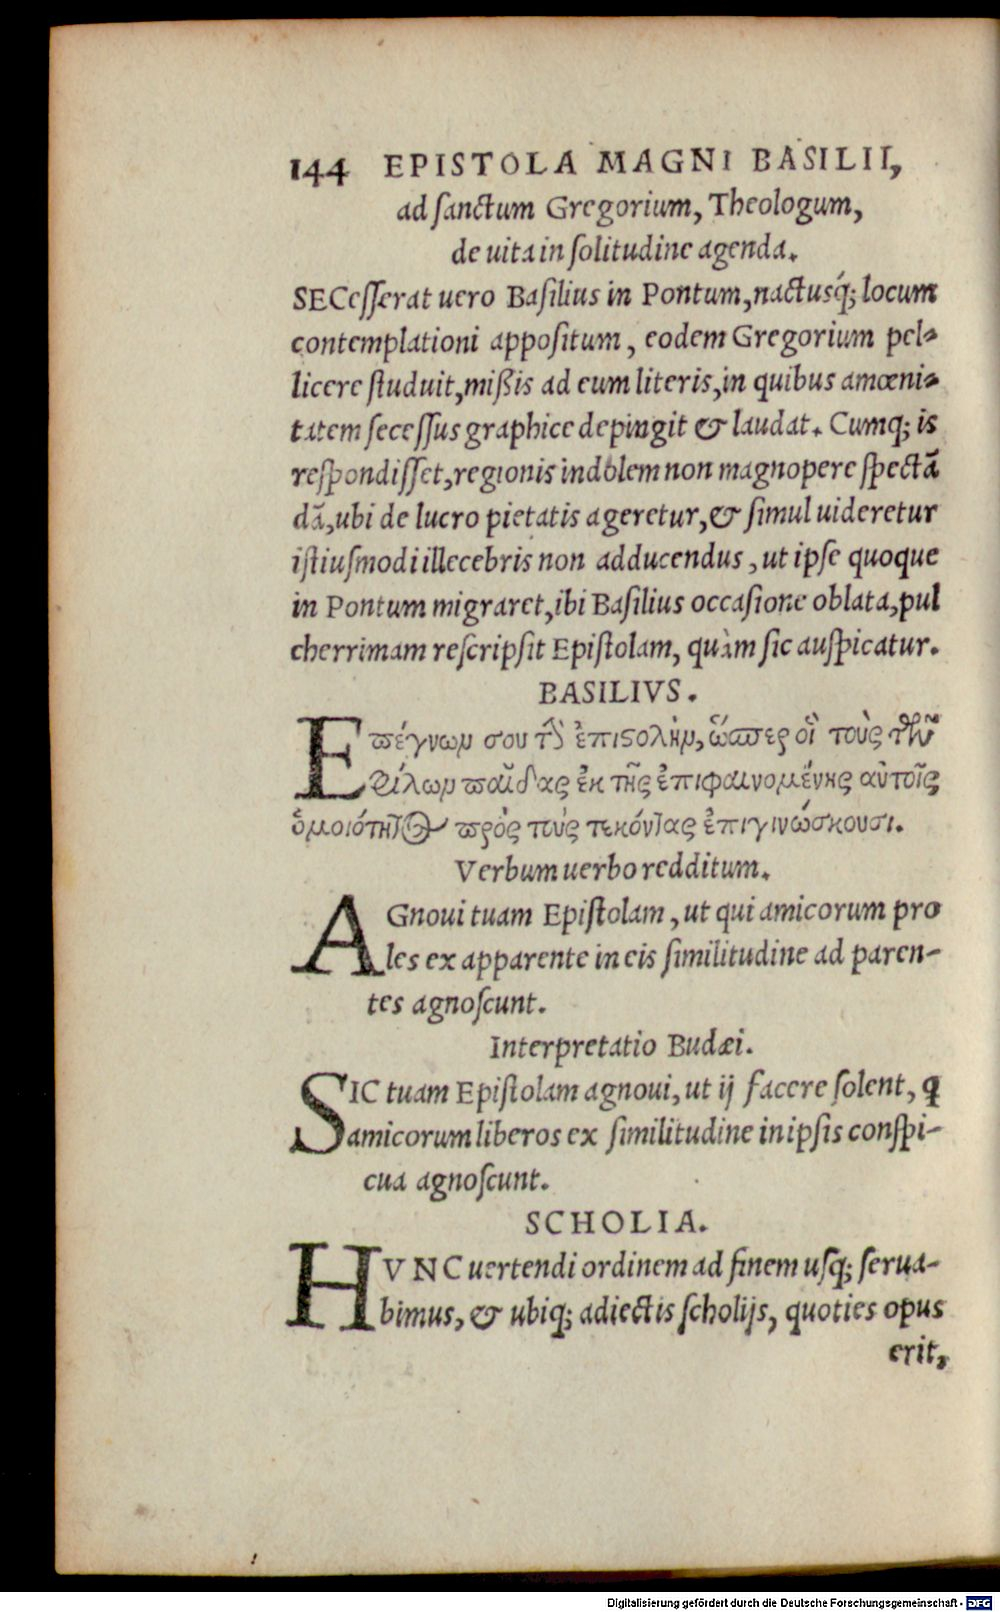 144 EPISTOLA MAGNI BASILII,
ad sanctum Gregorium, Theologum,
de uita in solitudine agenda.
SECesserat uero Basilius in Pontum, nactusq́; locum
contemplationi appositum, eodem Gregorium pel-
licere studuit, mißis ad eum literis, in quibus amœni-
tatem secessus graphice depingit & laudat. Cumq; is
respondisset, regionis indolem non magnopere spectā
dā, ubi de lucro pietatis ageretur, & simul uideretur
istiusmodi illecebris non adducendus, ut ipse quoque
in Pontum migraret, ibi Basilius occasione oblata, pul
cherrimam rescripsit Epistolam, quàm sic auspicatur.
BASILIVS.
Επέγνων σου τὴν ἐπιστολὴν, ὥσπερ οἳ τοὺς τῶν
φίλων παῖδας ἐκ τῆς ἐπιφαινομένης αὐτοῖς
ὁμοιότητος πρὸς τοὺς τεκόντας ἐπιγινώσκουσι.
Verbum uerbo redditum.
AGnoui tuam Epistolam, ut qui amicorum pro
les ex apparente in eis similitudine ad paren-
tes agnoscunt.
Interpretatio Budæi.
SIC tuam Epistolam agnoui, ut ij facere solent, q
amicorum liberos ex similitudine in ipsis conspi-
cua agnoscunt.
SCHOLIA.
HVNC uertendi ordinem ad finem usq; serua-
bimus, & ubiq; adiectis scholijs, quoties opus
erit,
Digitalisierung gefördert durch die Deutsche Forschungsgemeinschaft - DFG